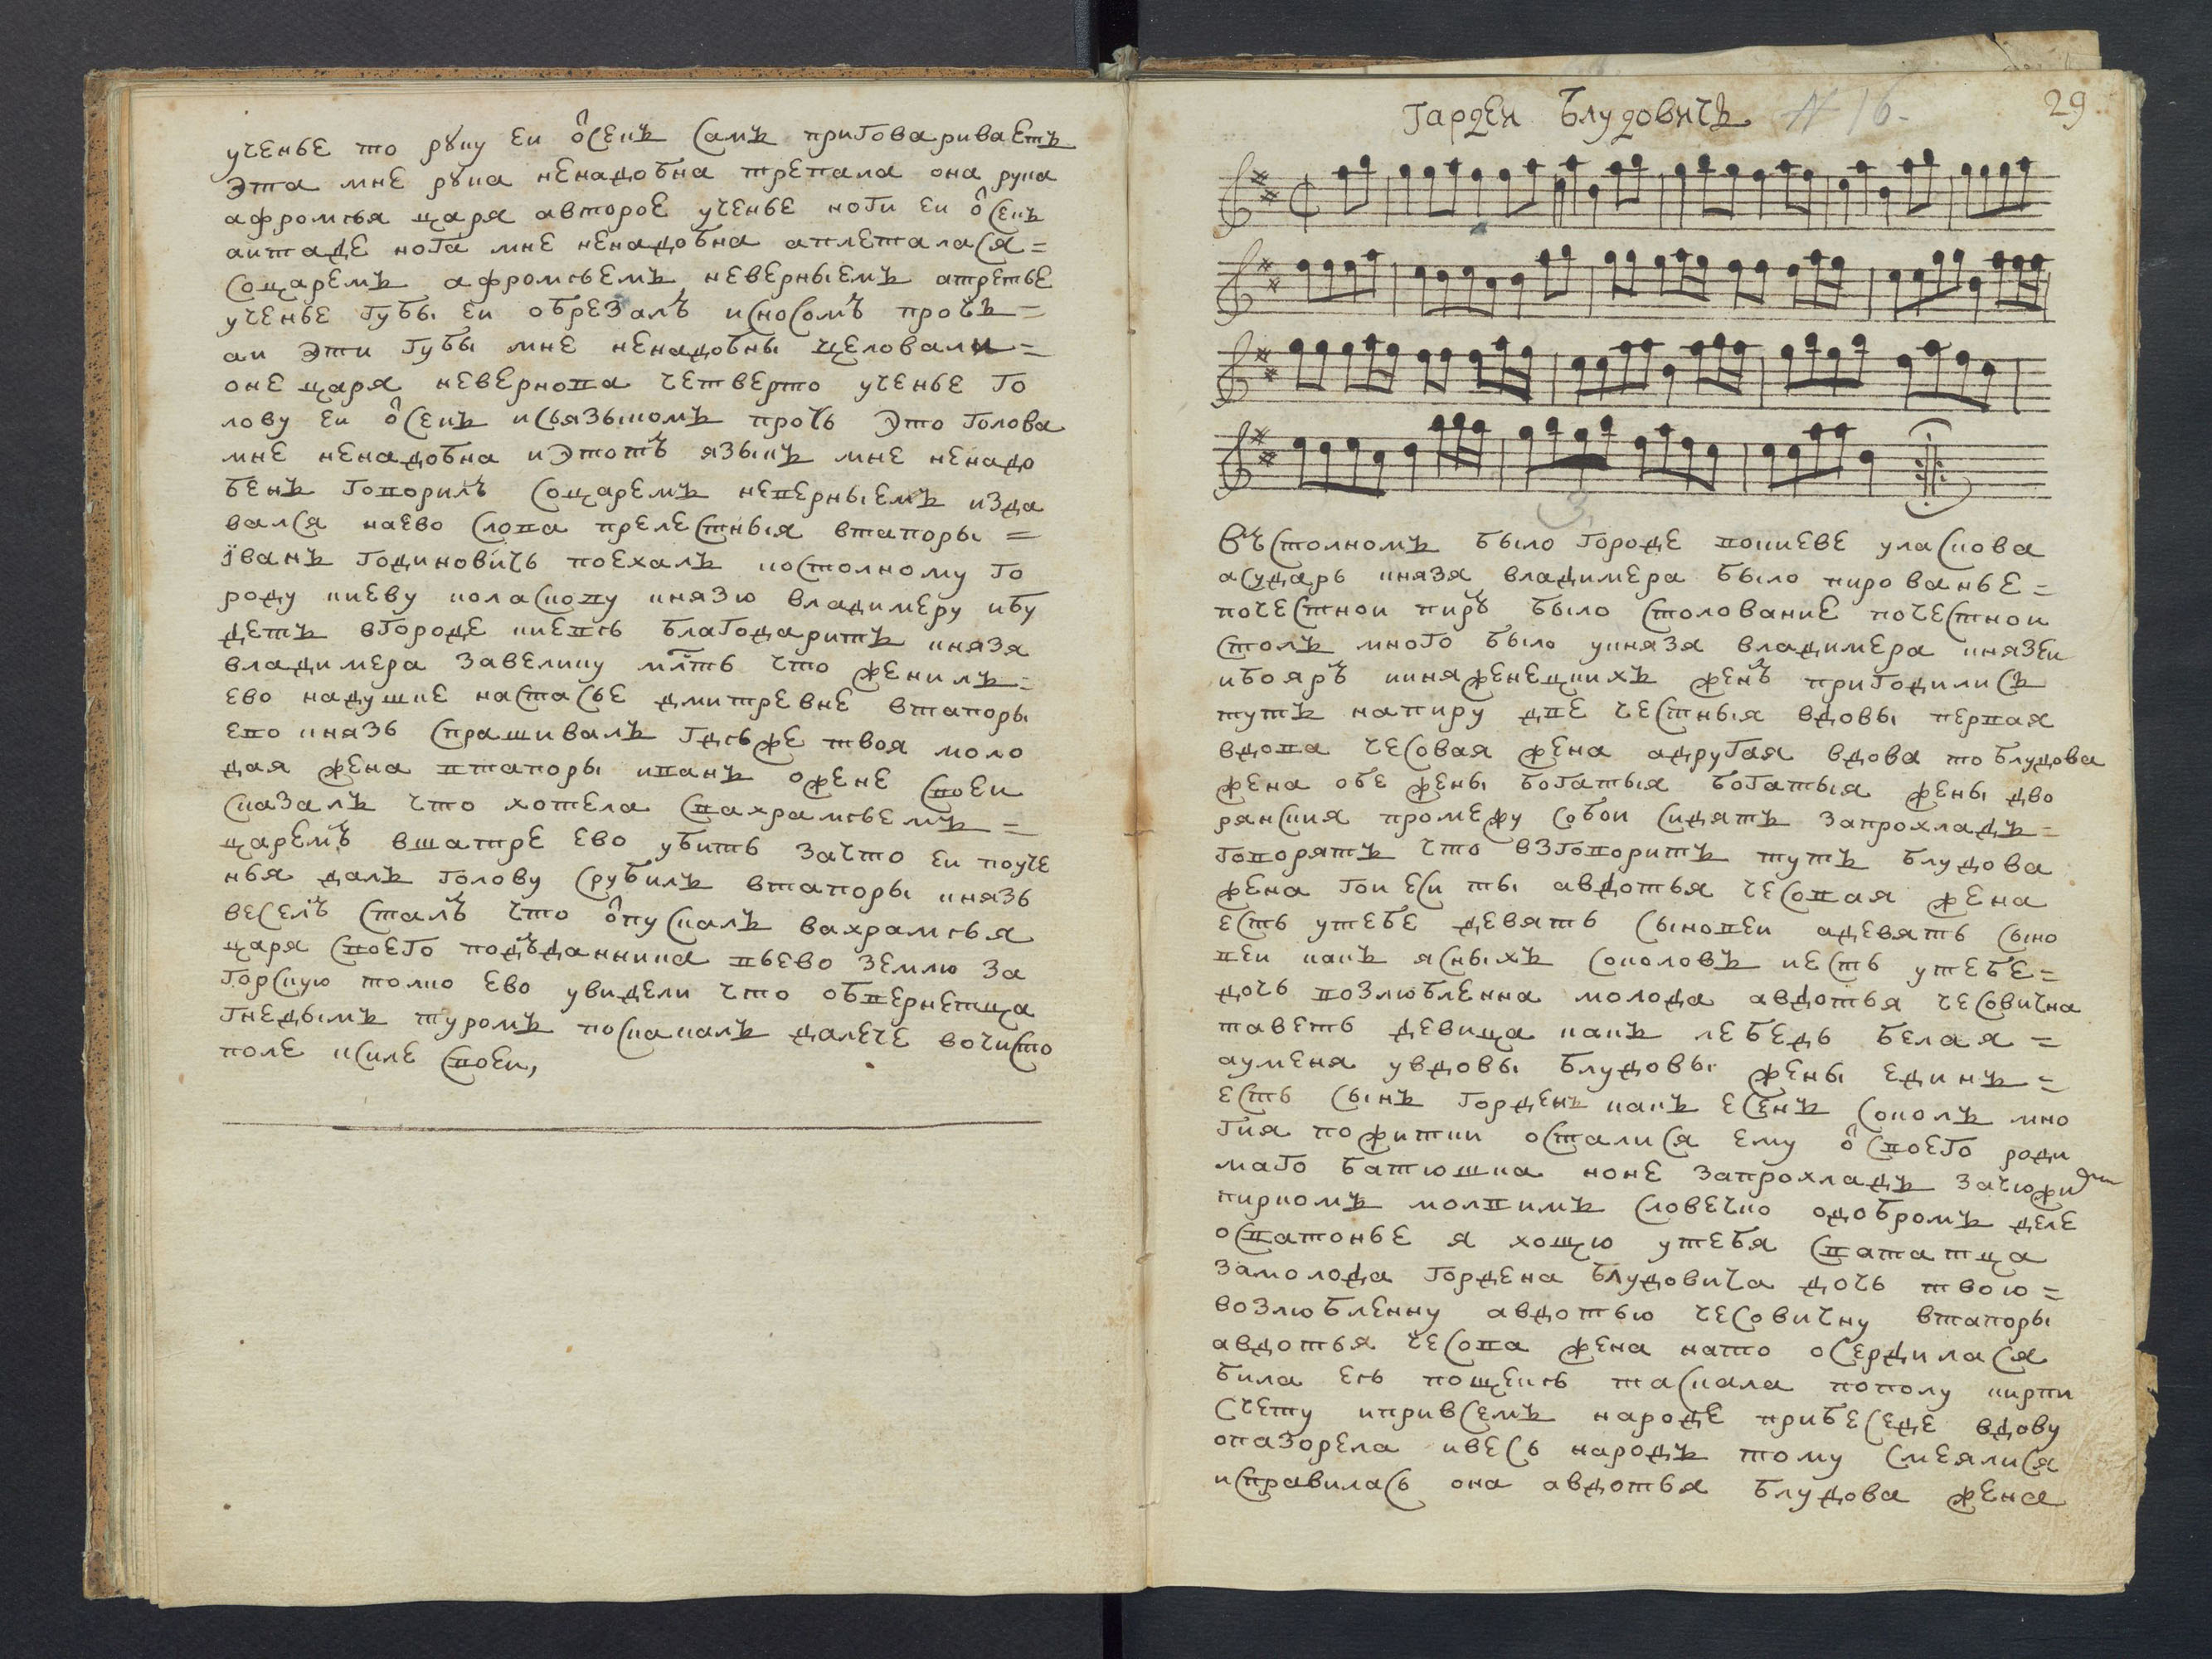 ученье то руку еи ѿсекъ самъ приговариваетъ
Эта мне рука ненадобна трепала она рука
афромѣя царя авторое ученье ноги еи ѿсекъ
аитаде нога мне ненадобна аплеталася=
соцаремъ афромѣемъ невернымъ атретье
ученье губы еи обрезалъ иносомъ прочь=
аи Эти губы мне ненадобны целовали=
оне царя невернова четверто ученье го
лову еи ѿсекъ исьязыкомъ прочь Это голова
мне ненадобна иЭтотъ языкъ мне ненадо
бенъ говорилъ соцаремъ неверныемъ изда
вался наево слова прелестныя втапоры=
їванъ годиновичь поехалъ костолному го
роду киеву коласкову князю владимеру ибу
детъ вгороде киевѣ благодаритъ князя
владимера завелику млсть что женилъ=
ево надушке настасье дмитревне втапоры
ево князь спрашивалъ гдѣже твоя моло
дая жена втапоры иванъ ожене своеи
сказалъ что хотела свахрамѣемъ=
царемъ вшатре ево убить зачто еи поуче
нья далъ голову срубилъ втапоры князь
веселъ сталъ что ѿпускалъ вахрамѣя
царя своего подъданника вьево землю за
горскую толко ево увидели что обвернетца
гнедымъ туромъ поскакалъ далече вочисто
поле ксиле своеи,
гарден блудовичъ N 16. 29
въстолномъ было городе вокиеве уласкова
асударь князя владимера было пированье=
почестнои пиръ было столование почестнои
столъ много было укнязя владимера князеи
ибояръ икняженецкихъ женъ пригодилисъ
тутъ напиру две честныя вдовы первая
вдова чесовая жена адругая вдова то блудова
жена обе жены богатыя богатыя жены дво
рянския промежу собои сидятъ запрохладъ=
говорятъ что взговоритъ тутъ блудова
жена гои еси ты авдотья чесовая жена
есть утебе девять сыновеи адевять сыно
веи какъ ясныхъ соколовъ иесть утебе=
дочь возлюбленна молода авдотья чесовична
таветь девица какъ лебедь белая=
ауменя увдовы блудовы жены единъ=
есть сынъ горденъ какъ есенъ соколъ мно
гия пожитки осталися ему ѿ своего роди
маго батюшка ноне запрохладъ зачюжи
пиркомъ молвимъ словечко одобромъ деле
осватонье я хощю утебя сватацца
замолода гордена блудовича дочь твою=
возлюбленну авдотью чесовичну втапоры
авдотья чесова жена нато осердилася
била еѣ пощекѣ таскала пополу кирпи
счету иприв семъ народе прибеседе вдову
опазорела ивесь народъ тому смеялися
исправилась она авдотья блудова жена